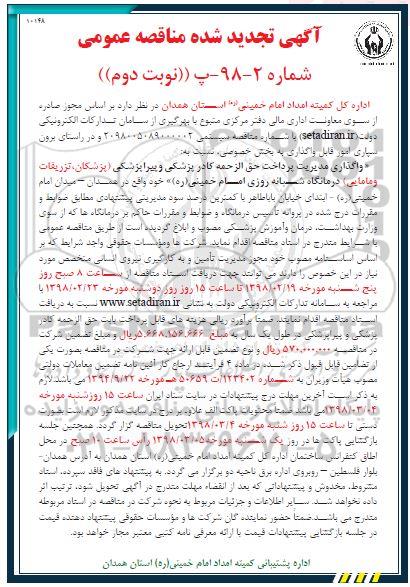 ۱۰۱۴۸
آگهی تجدید شده مناقصه عمومی
شماره ۲-۹۸-پ ((نوبت دوم))
اداره کل کمیته امداد امام خمینی(ره) استان همدان در نظر دارد بر اساس مجوز صادره
از سوی معاونت اداری مالی دفتر مرکزی متبوع با بهره‌گیری از سامانه تدارکات الکترونیکی
دولت(setadiran.ir) با شماره مناقصه سیستمی ۲۰۹۸۰۰۵۰۸۹۰۰۰۰۰۲ و در راستای برون
سپاری امور قابل واگذاری به بخش خصوصی، نسبت به:
*واگذاری مدیریت پرداخت حق الزحمه کادر پزشکی و پیراپزشکی (پزشکان، تزریقات
ومامایی) درمانگاه شبانه روزی امام خمینی(ره)* خود واقع در همدان – میدان امام
خمینی(ره) - ابتدای خیابان باباطاهر با کمترین درصد سود مدیریتی پیشنهادی مطابق ضوابط و
مقررات درج شده در پروانه تأسیس درمانگاه و ضوابط و مقررات حاکم بر درمانگاه ها که از سوی
وزارت بهداشت، درمان وآموزش پزشکی مصوب و ابلاغ گردیده است از طریق مناقصه عمومی
با شرایط مندرج در اسناد مناقصه اقدام نماید. شرکت ها ومؤسسات حقوقی واجد شرایط که بر
اساس اساسنامه مصوب خود مجوز مدیریت تأمین و به کارگیری نیروی انسانی متخصص مورد
نیاز در این خصوص را دارند می توانند جهت دریافت اسناد مناقصه از ساعت ۸ صبح روز
پنج شنبه مورخه ۱۳۹۸/۰۲/۱۹ تا ساعت ۱۵ روز روز دوشنبه مورخه ۱۳۹۸/۰۲/۲۳ با
مراجعه به سامانه تدارکات الکترونیکی دولت به نشانی www.setadiran.ir نسبت به دریافت
اسناد مناقصه اقدام نمایند. ضمناً برآورد ریالی هزینه های قابل پرداخت بابت حق الزحمه کادر
پزشکی و پیراپزشکی در طول یک سال به مبلغ ۵.۶۶۸.۱۵۶.۶۶۶ ریال و مبلغ تضمین شرکت
در مناقصه ۵۷۰.۰۰۰.۰۰۰ ریال و نوع تضمین قابل ارائه جهت شرکت در مناقصه بصورت یکی
از تضامین قابل قبول ذکر شده در ماده ۴ فرآیند ارجاع کار آئین نامه تضمین معاملات دولتی
مصوب هیأت وزیران به شماره ۱۲۳۴۰۲/ت ۵۰۶۵۹ هـ مورخه ۱۳۹۴/۹/۲۲ می باشد.لازم
به ذکر است آخرین مهلت درج پیشنهادات در سایت ستاد ایران ساعت ۱۵ روزشنبه مورخه
۱۳۹۸/۰۳/۰۴ می باشد ضمناً محتویات پاکت الف علاوه بر درج در سایت مذکور لازم است بصورت
دستی تا ساعت ۱۵ روز شنبه مورخه ۱۳۹۸/۰۳/۴ تحویل مناقصه گزار گردد. همچنین جلسه
بازگشایی پاکت ها در روز یک شنبه مورخه ۱۳۹۸/۰۳/۰۵ رأس ساعت ۱۰ صبح در محل
اطاق کنفرانس ساختمان اداره کل کمیته امداد امام خمینی(ره) استان همدان به آدرس همدان-
بلوار فلسطین – روبروی اداره برق ناحیه دو برگزار می گردد. به پیشنهاد های فاقد سپرده، اسناد
مشروط، مخدوش و پیشنهاداتی که بعد از انقضاء مهلت مندرج در آگهی تحویل شود، ترتیب اثر
داده نخواهد شد. سایر اطلاعات و جزئیات مربوط به نحوه شرکت در مناقصه در اسناد مربوطه
مندرج می باشد.ضمناً حضور نماینده کان شرکت ها و مؤسسات حقوقی پیشنهاد دهنده قیمت
در جلسه بازگشایی پیشنهادات قیمت با ارائه معرفی نامه کتبی معتبر مجاز خواهد بود.
اداره پشتیبانی کمیته امداد امام خمینی(ره) استان همدان